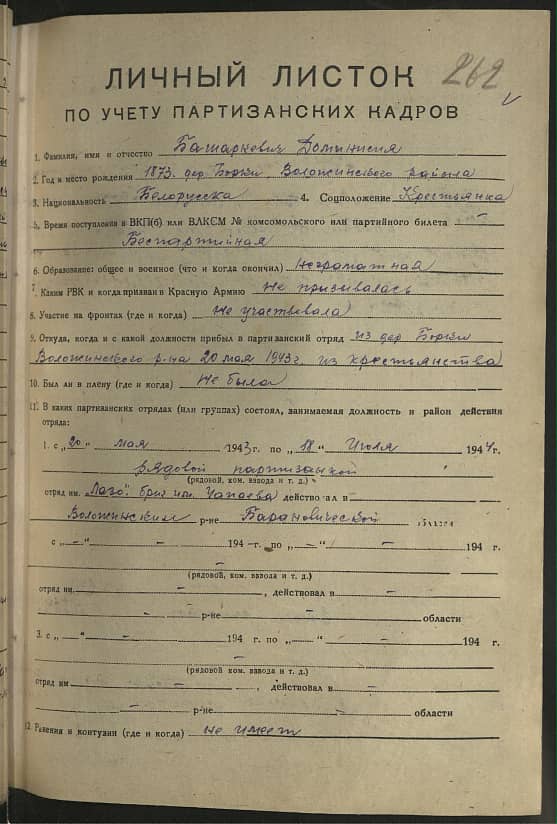 262
ЛИЧНЫЙ ЛИСТОК
ПО УЧЕТУ ПАРТИЗАНСКИХ КАДРОВ
1. Фамилия, имя и отчество Башаркевич Доминисия
2. Год и место рождения 1873. дер. Борки, Воложинского района
3. Национальность Белорусска 4. Соцположение Крестьянка
5. Время поступления в ВКП(б) или ВЛКСМ № комсомольского или партийного билета —
Беспартийная
6. Образование: общее и военное (что и когда окончил) Неграматная
7. Каким РВК и когда призван в Красную Армию Не призывалась
8. Участие на фронтах (где и когда) Не участвовала
9. Откуда, когда и с какой должности прибыл в партизанский отряд из дер Борки
Воложинского р-на 20 мая 1943 г. из крестьянства
10. Был ли в плену (где и когда) Не была
11. В каких партизанских отрядах (или группах) состоял, занимаемая должность и район действия
отряда:
1. с „20" мая 1943 г. по „18" Июля 1944 г.
рядовой партизанкой
(рядовой, ком. взвода и т. д.)
отряд им. „Лазо". бриг им. Чапаева действовал в
Воложинским р-не Барановической области
с „—" — 194— г. по „—" — 194 г.
—
(рядовой, ком. взвода и т. д.)
отряд им. —, действовал в —
— р-не — области
3. с „—" — 194 г. по „—" — 194 г.
—
(рядовой, ком. взвода и т. д.)
отряд им —, действовал в —
— р-не — области
12. Ранения и контузии (где и когда) не имеет